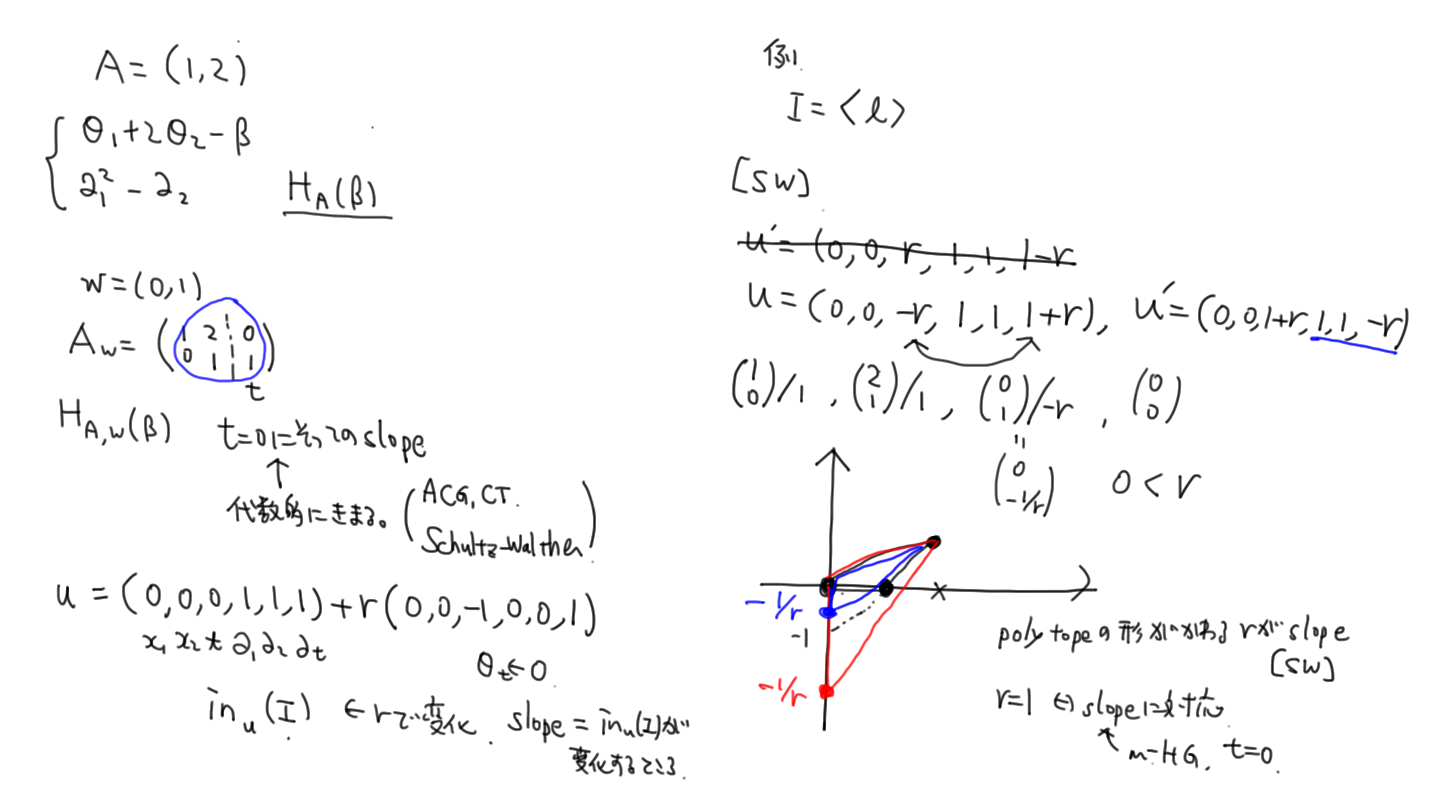 A = (1,2)
θ₁+2θ₂-β
∂₁²-∂₂
H_A(β)
w=(0,1)
A_w=
1 2 0
0 1 1
t
H_{A,w}(β)
t=0に そっての slope
↑
代数的にきまる。
ACG, CT.
Schultz-Walther
u = (0,0,0,1,1,1)+r(0,0,-1,0,0,1)
x₁ x₂ t ∂₁ ∂₂ ∂t
θ_t ← 0
in_u(I) ← rで変化.
slope = in_u(I)が
変化するところ
例.
I = <ℓ>
[SW]
u'= (0,0,r,1,1,1-r
u=(0,0,-r,1,1,1+r), u'=(0,0,1+r,1,1,-r)
(1 0)/1, (2 1)/1, (0 1)/-r, (0 0)
=
(0 -1/r) 0<r
-1/r
-1
-1/r
×
polytopeの形がかわる rが slope
[SW]
r=1 ⇔ slopeに対応
m-HG. t=0